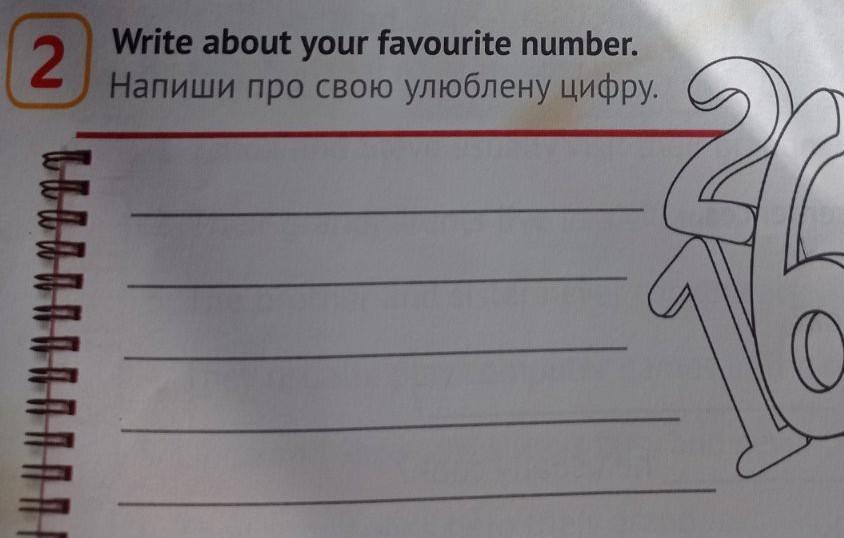 2
Write about your favourite number.
Напиши про свою улюблену цифру.
2
6
1